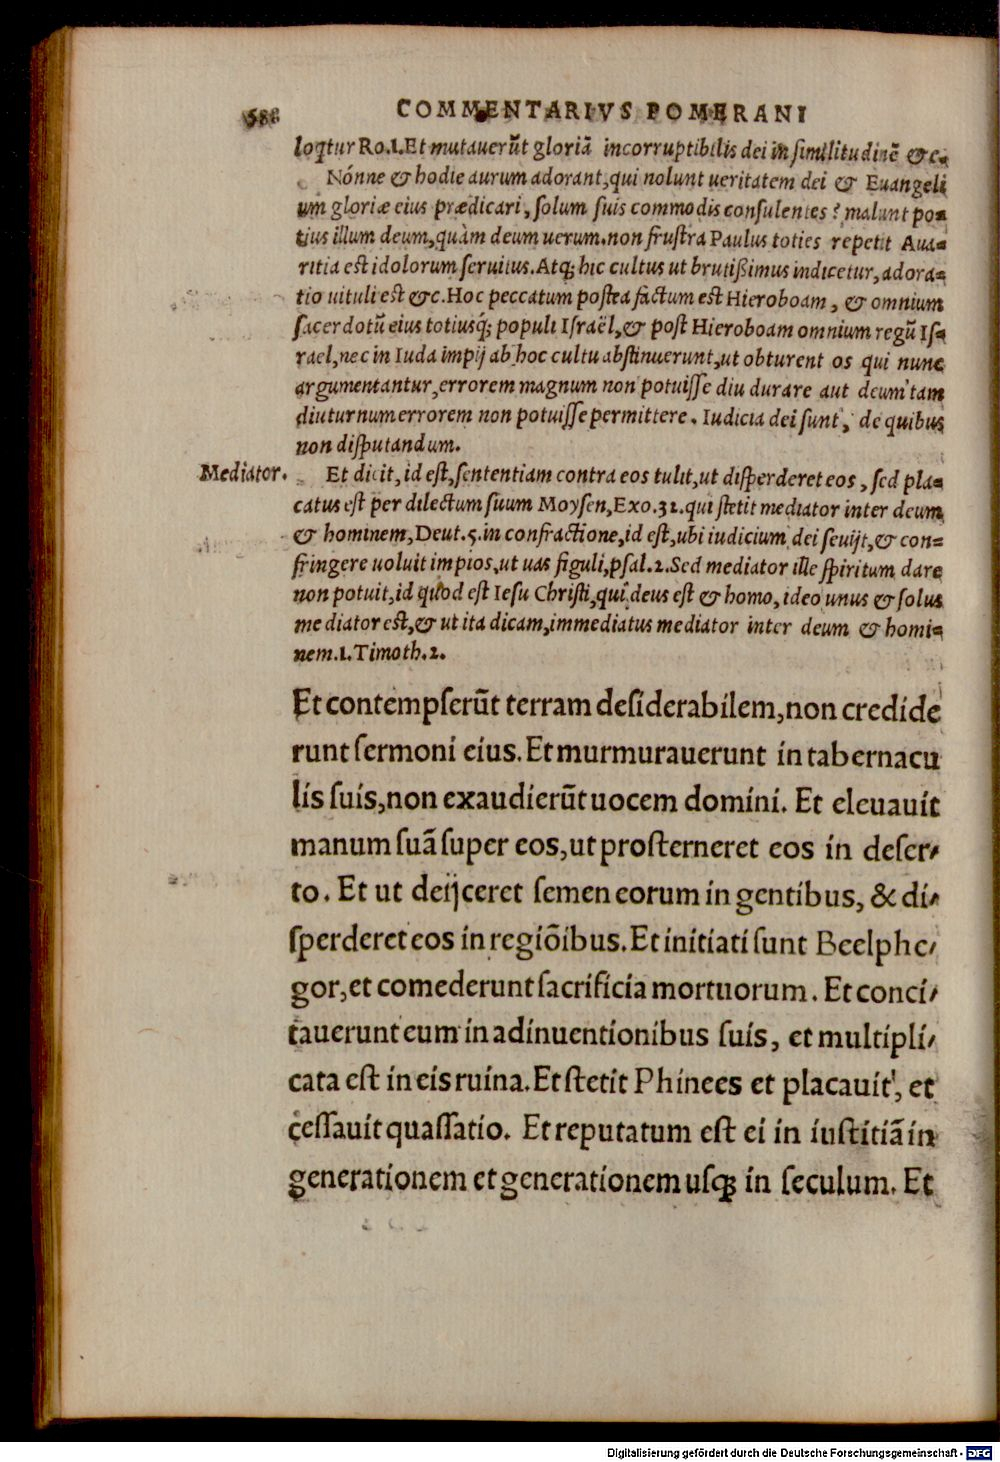 588 COMMENTARIVS POMERANI
loq̃tur Ro.1. Et mutauerũt gloriã incorruptibilis dei in similitudinẽ &c.
Nónne & hodie aurum adorant, qui nolunt ueritatem dei & Euangeli
um gloriæ eius prædicari, solum suis commodis consulentes? malunt po=
tius illum deum, quàm deum uerum. non frustra Paulus toties repetit Aua=
ritia est idolorum seruitus. Atq; hic cultus ut brutißimus indicetur, adora=
tio uituli est &c. Hoc peccatum postea factum est Hieroboam, & omnium
sacerdotũ eius totiusq́; populi Israël, & post Hieroboam omnium regũ Is=
rael, nec in Iuda impij ab hoc cultu abstinuerunt, ut obturent os qui nunc
argumentantur, errorem magnum non potuisse diu durare aut deum tam
diuturnum errorem non potuisse permittere. Iudicia dei sunt, de quibus
non disputandum.
Mediator. Et dicit, id est, sententiam contra eos tulit, ut disperderet eos, sed pla=
catus est per dilectum suum Moysen, Exo.32. qui stetit mediator inter deum
& hominem, Deut.5. in confractione, id est, ubi iudicium dei seuijt, & con=
fringere uoluit impios, ut uas figuli, psal.2. Sed mediator ille spiritum dare
non potuit, id quod est Iesu Christi, qui deus est & homo, ideo unus & solus
mediator est, & ut ita dicam, immediatus mediator inter deum & homi=
nem. 1. Timoth. 2.
Et contempserũt terram desiderabilem, non credide
runt sermoni eius. Et murmurauerunt in tabernacu
lis suis, non exaudierũt uocem domini. Et eleuauit
manum suã super eos, ut prosterneret eos in deser/
to. Et ut deijceret semen eorum in gentibus, & di/
sperderet eos in regiõibus. Et initiati sunt Beelphe/
gor, et comederunt sacrificia mortuorum. Et conci/
tauerunt eum in adinuentionibus suis, et multipli/
cata est in eis ruina. Et stetit Phinees et placauit, et
cessauit quassatio. Et reputatum est ei in iustitiã in
generationem et generationem usq; in seculum. Et
Digitalisierung gefördert durch die Deutsche Forschungsgemeinschaft - DFG